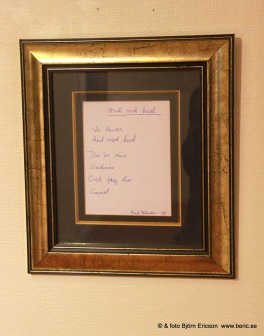 Hud mot hud
Vi lever
hud mot hud
Du är min
Gudinna
Och jag din
Gud
© & foto Björn Ericson www.beric.se